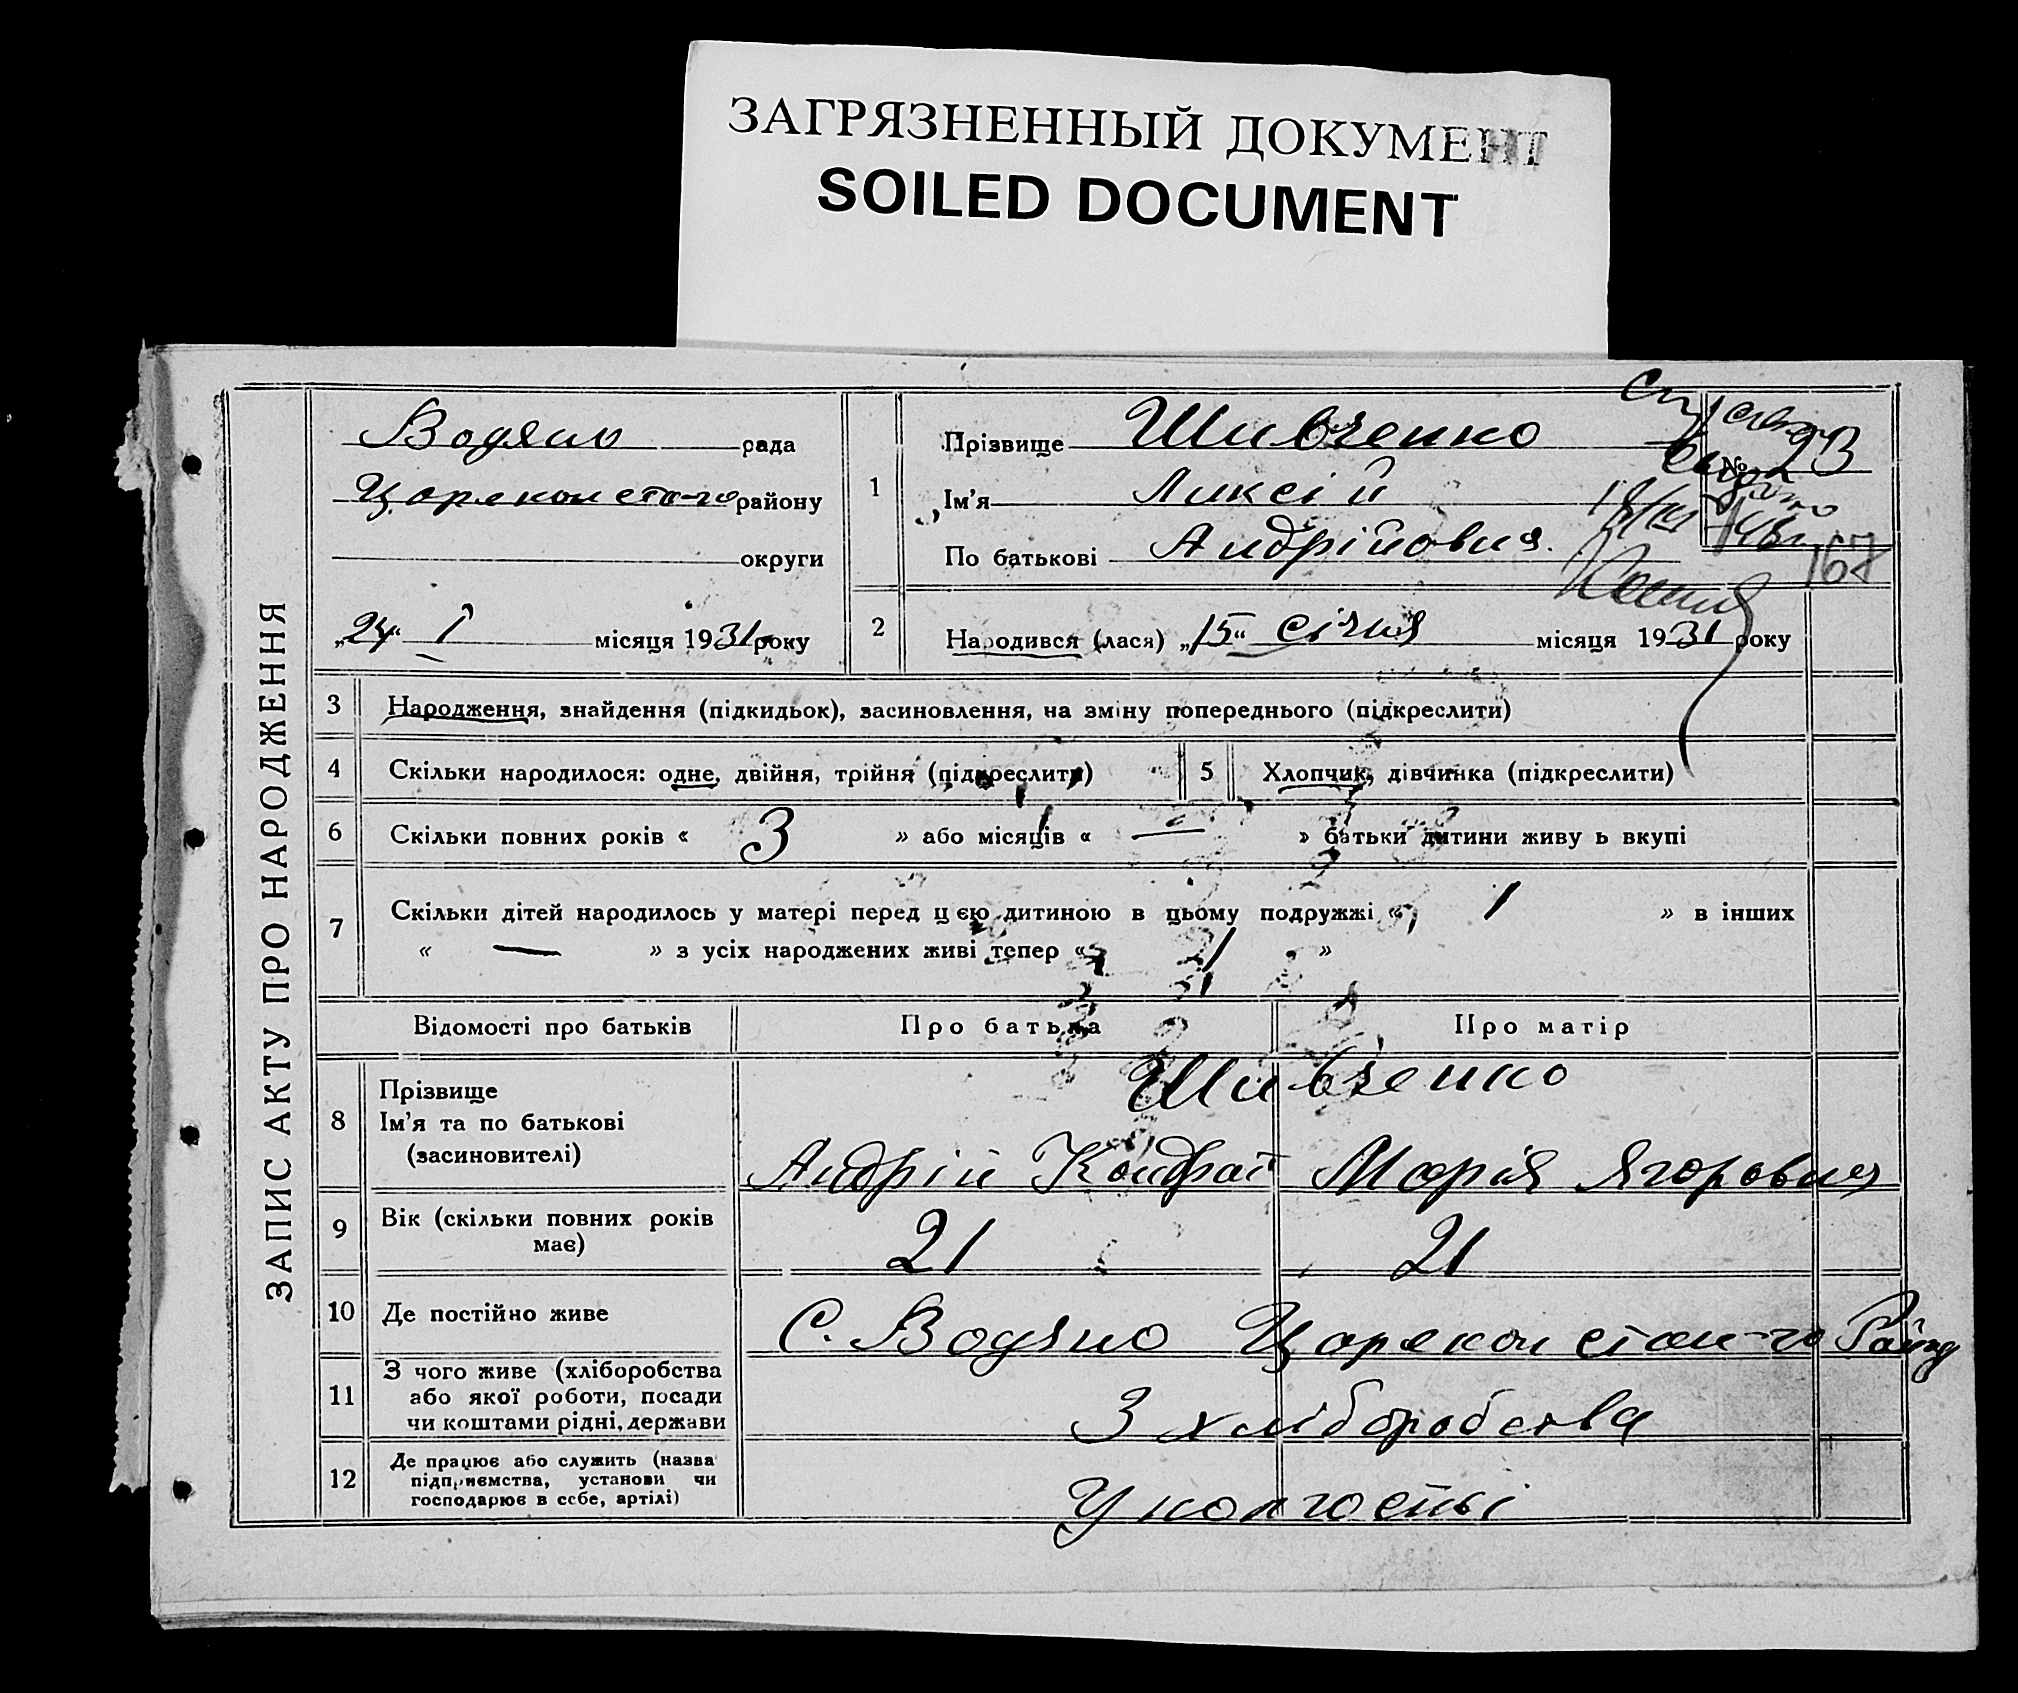 ЗАГРЯЗНЕННЫЙ ДОКУМЕНТ
SOILED DOCUMENT
ЗАПИС АКТУ ПРО НАРОДЖЕННЯ
Водяно рада
Царекон ста-го району
округи
„24“ I місяця 1931 року
1
Прізвище Шивченко
Ім'я Аиксій
По батькові Андрійович.
№ 23
18/III-46
167
2 Народився (лася) „15“ січня місяця 1931 року
3 Народження, знайдення (підкидьок), засиновлення, на зміну попереднього (підкреслити)
4 Скільки народилося: одне, двійня, трійня (підкреслити) 5 Хлопчик, дівчинка (підкреслити)
6 Скільки повних років « 3 » або місяців « — » батьки дитини живу ь вкупі
7 Скільки дітей народилось у матері перед цією дитиною в цьому подружжі « 1 » в інших
« — » з усіх народжених живі тепер « 1 »
Відомості про батьків Про батька Про матір
8 Прізвище
Ім'я та по батькові
(засиновителі)
Шивченко
Андрій Кондрат Марія Ягоровня
9 Вік (скільки повних років
має)
21 21
10 Де постійно живе С. Водяно Царекон стан-го Району
11 З чого живе (хліборобства
або якої роботи, посади
чи коштами рідні, держави
З хліборобства
12 Де працює або служить (назва
підприємства, установи чи
господарює в себе, артілі)
У колгоспі